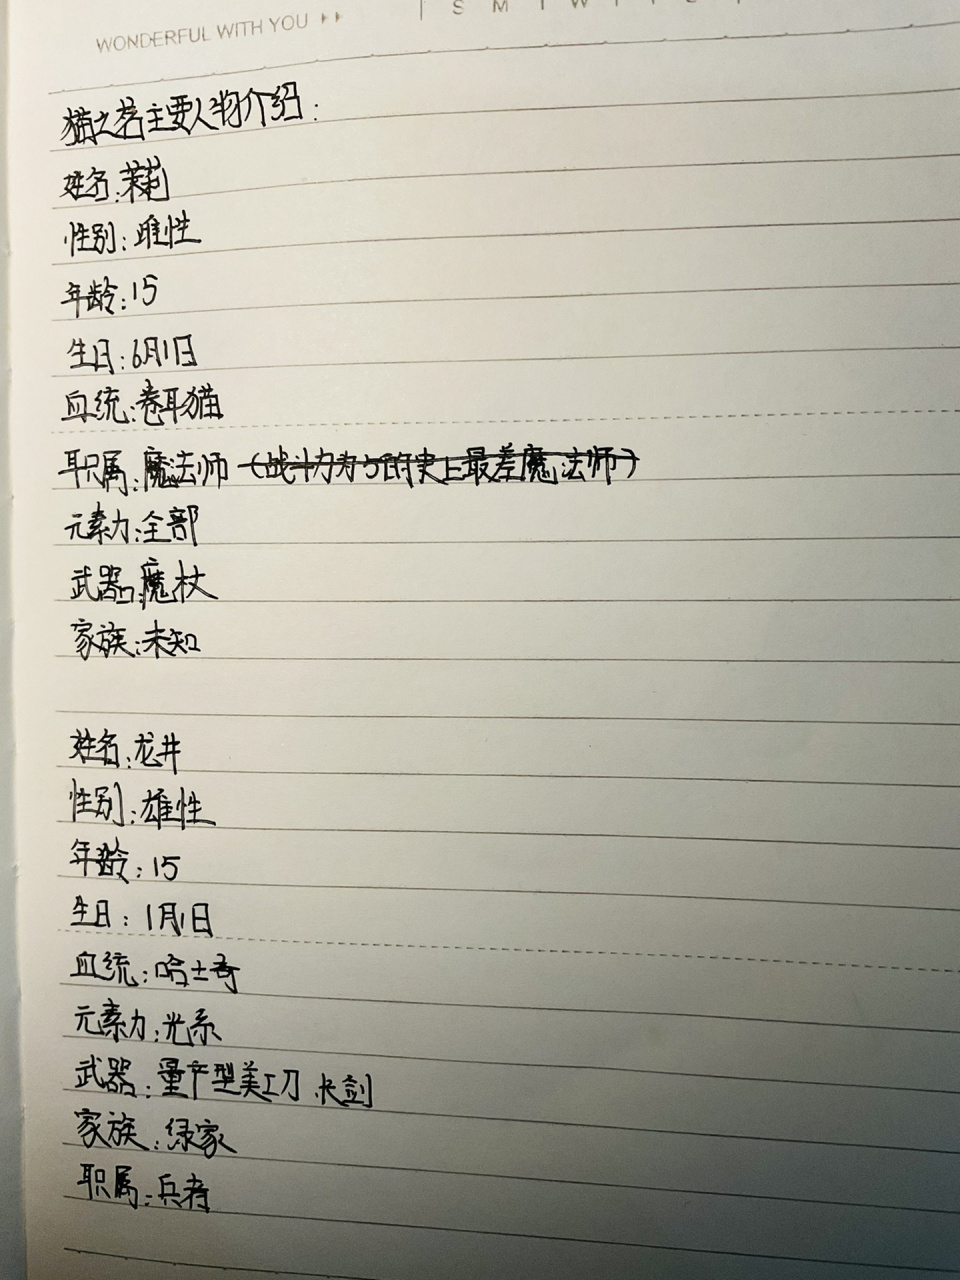 WONDERFUL WITH YOU
S M T W T F S
猫之茗主要人物介绍:
姓名:茉莉
性别:雌性
年龄:15
生日:6月1日
血统:卷耳猫
职属:魔法师(战斗力为5的史上最差魔法师)
元素力:全部
武器:魔杖
家族:未知
姓名:龙井
性别:雄性
年龄:15
生日:1月1日
血统:哈士奇
元素力:光系
武器:量产型美工刀 长剑
家族:绿家
职属:兵者